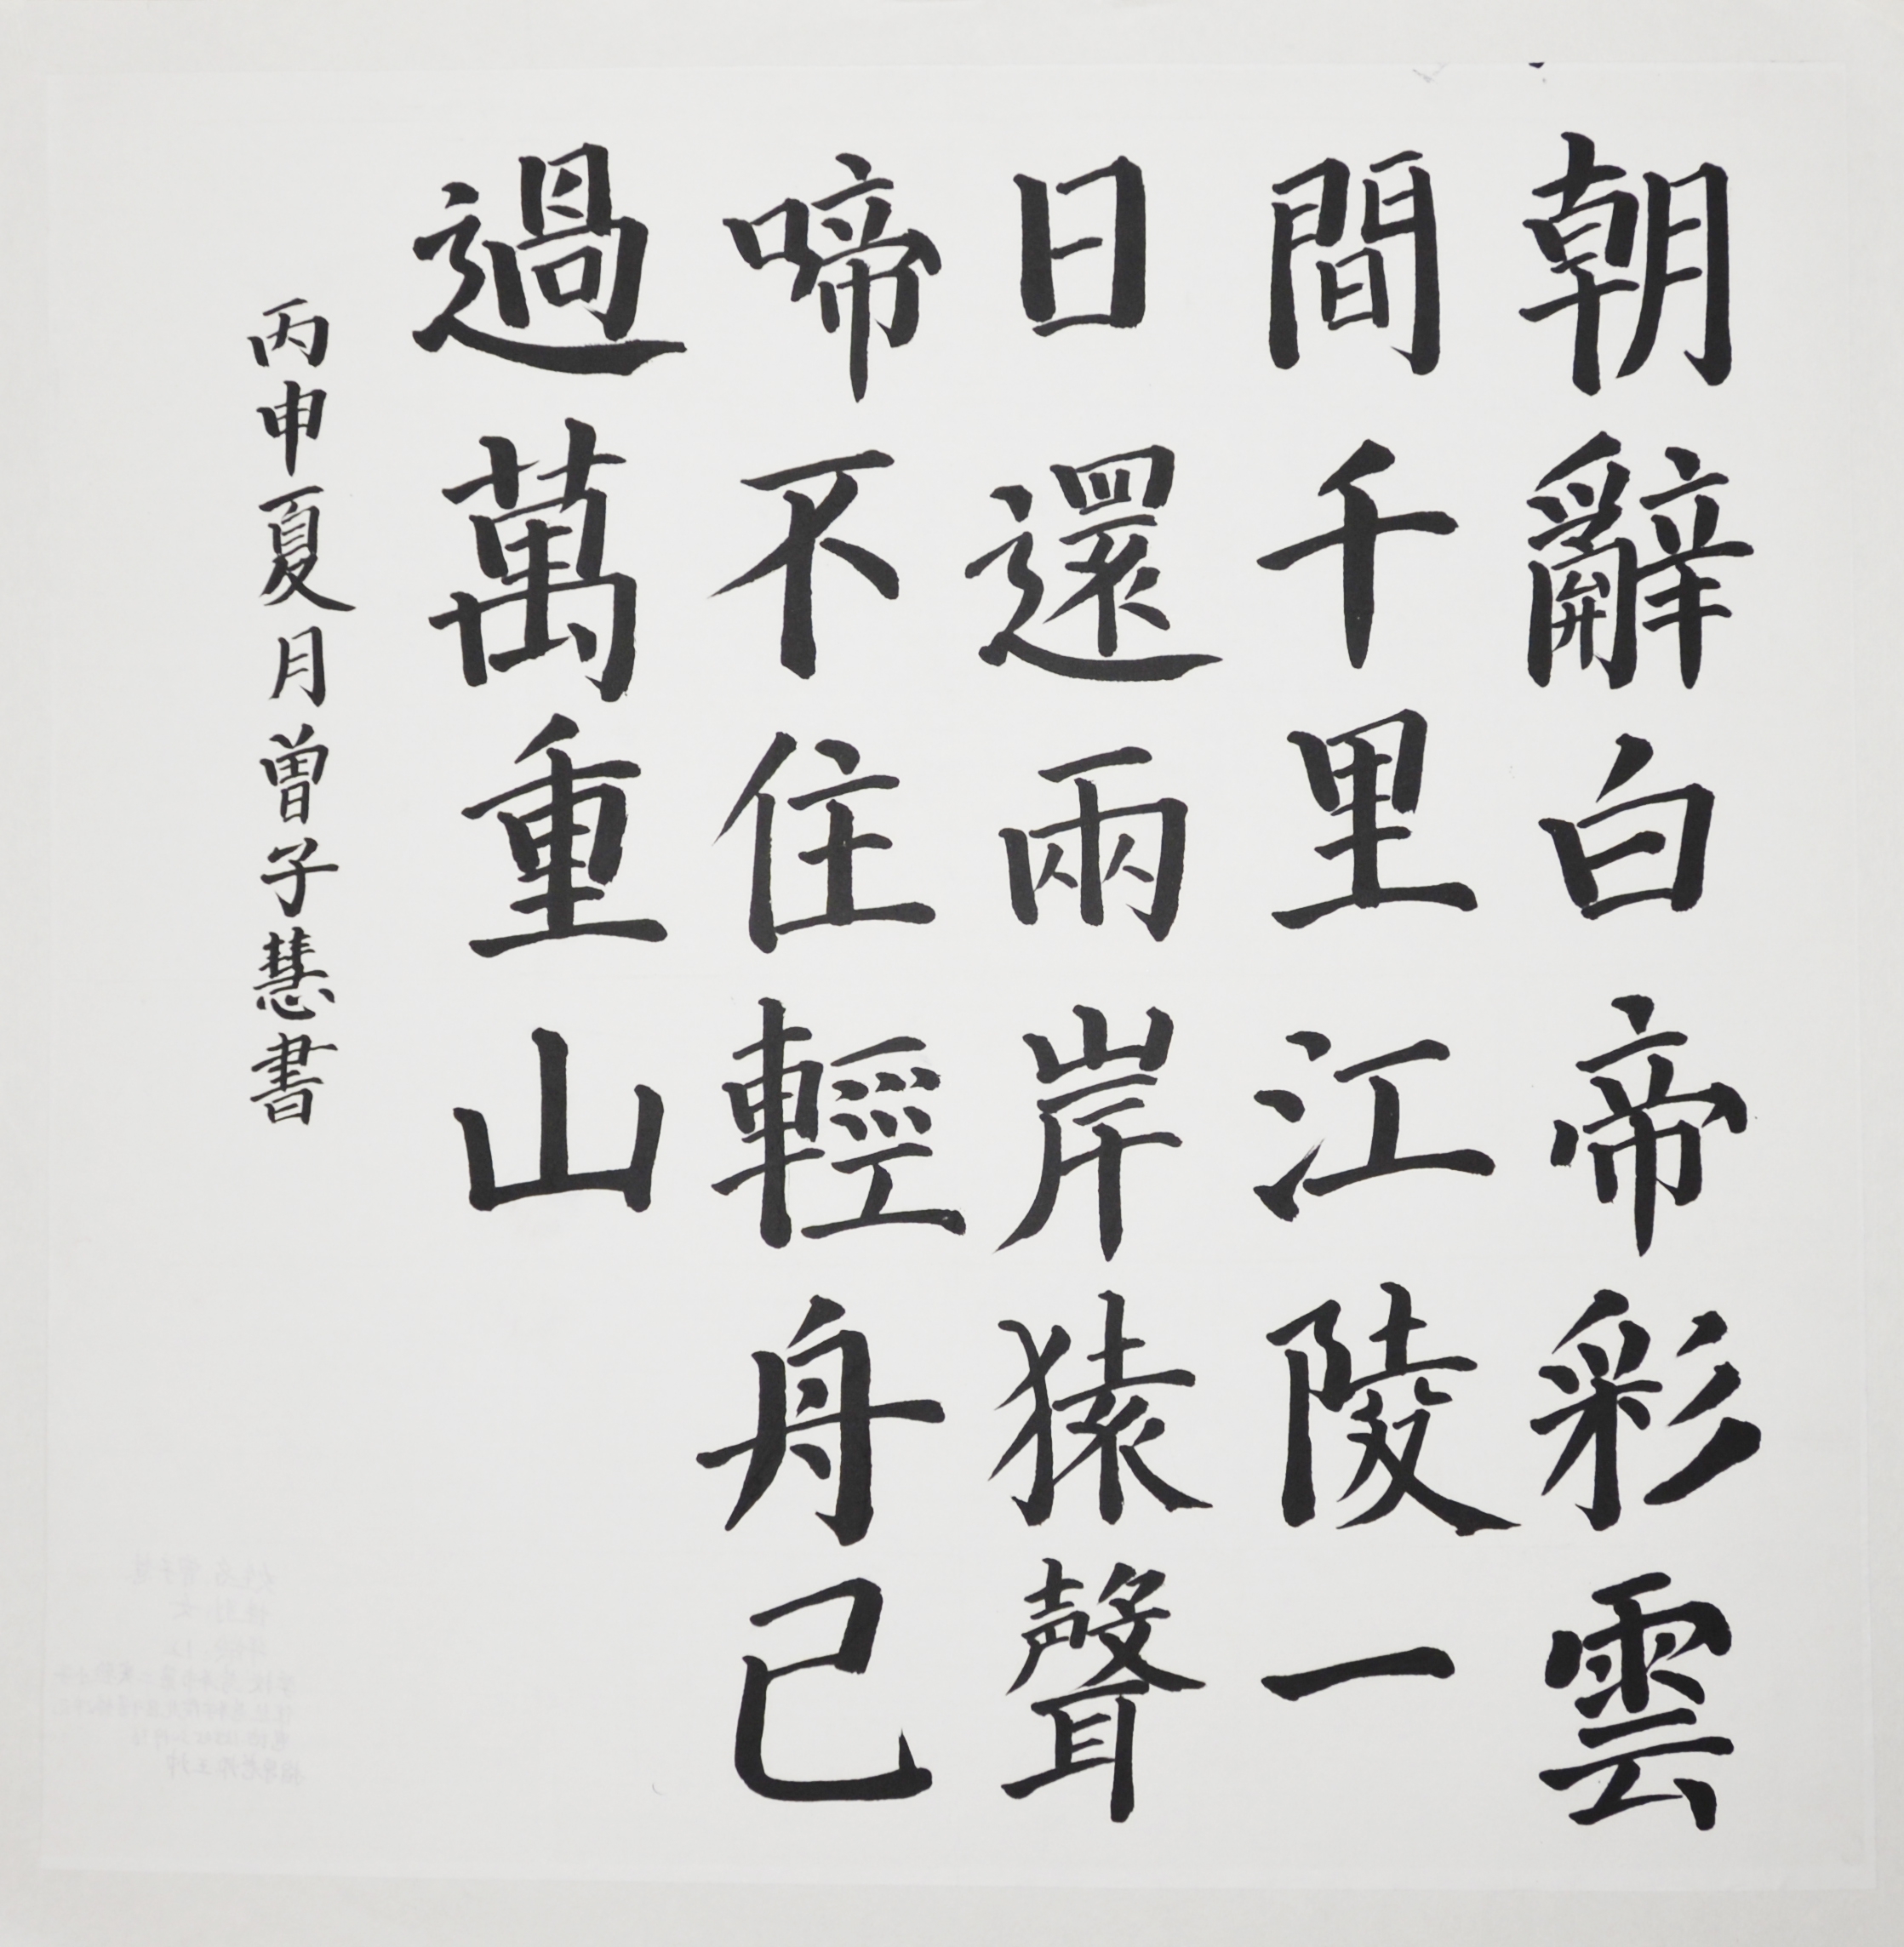 朝辭白帝彩雲
間千里江陵一
日還兩岸猿聲
啼不住輕舟已
過萬重山
丙申夏月曾子慧書